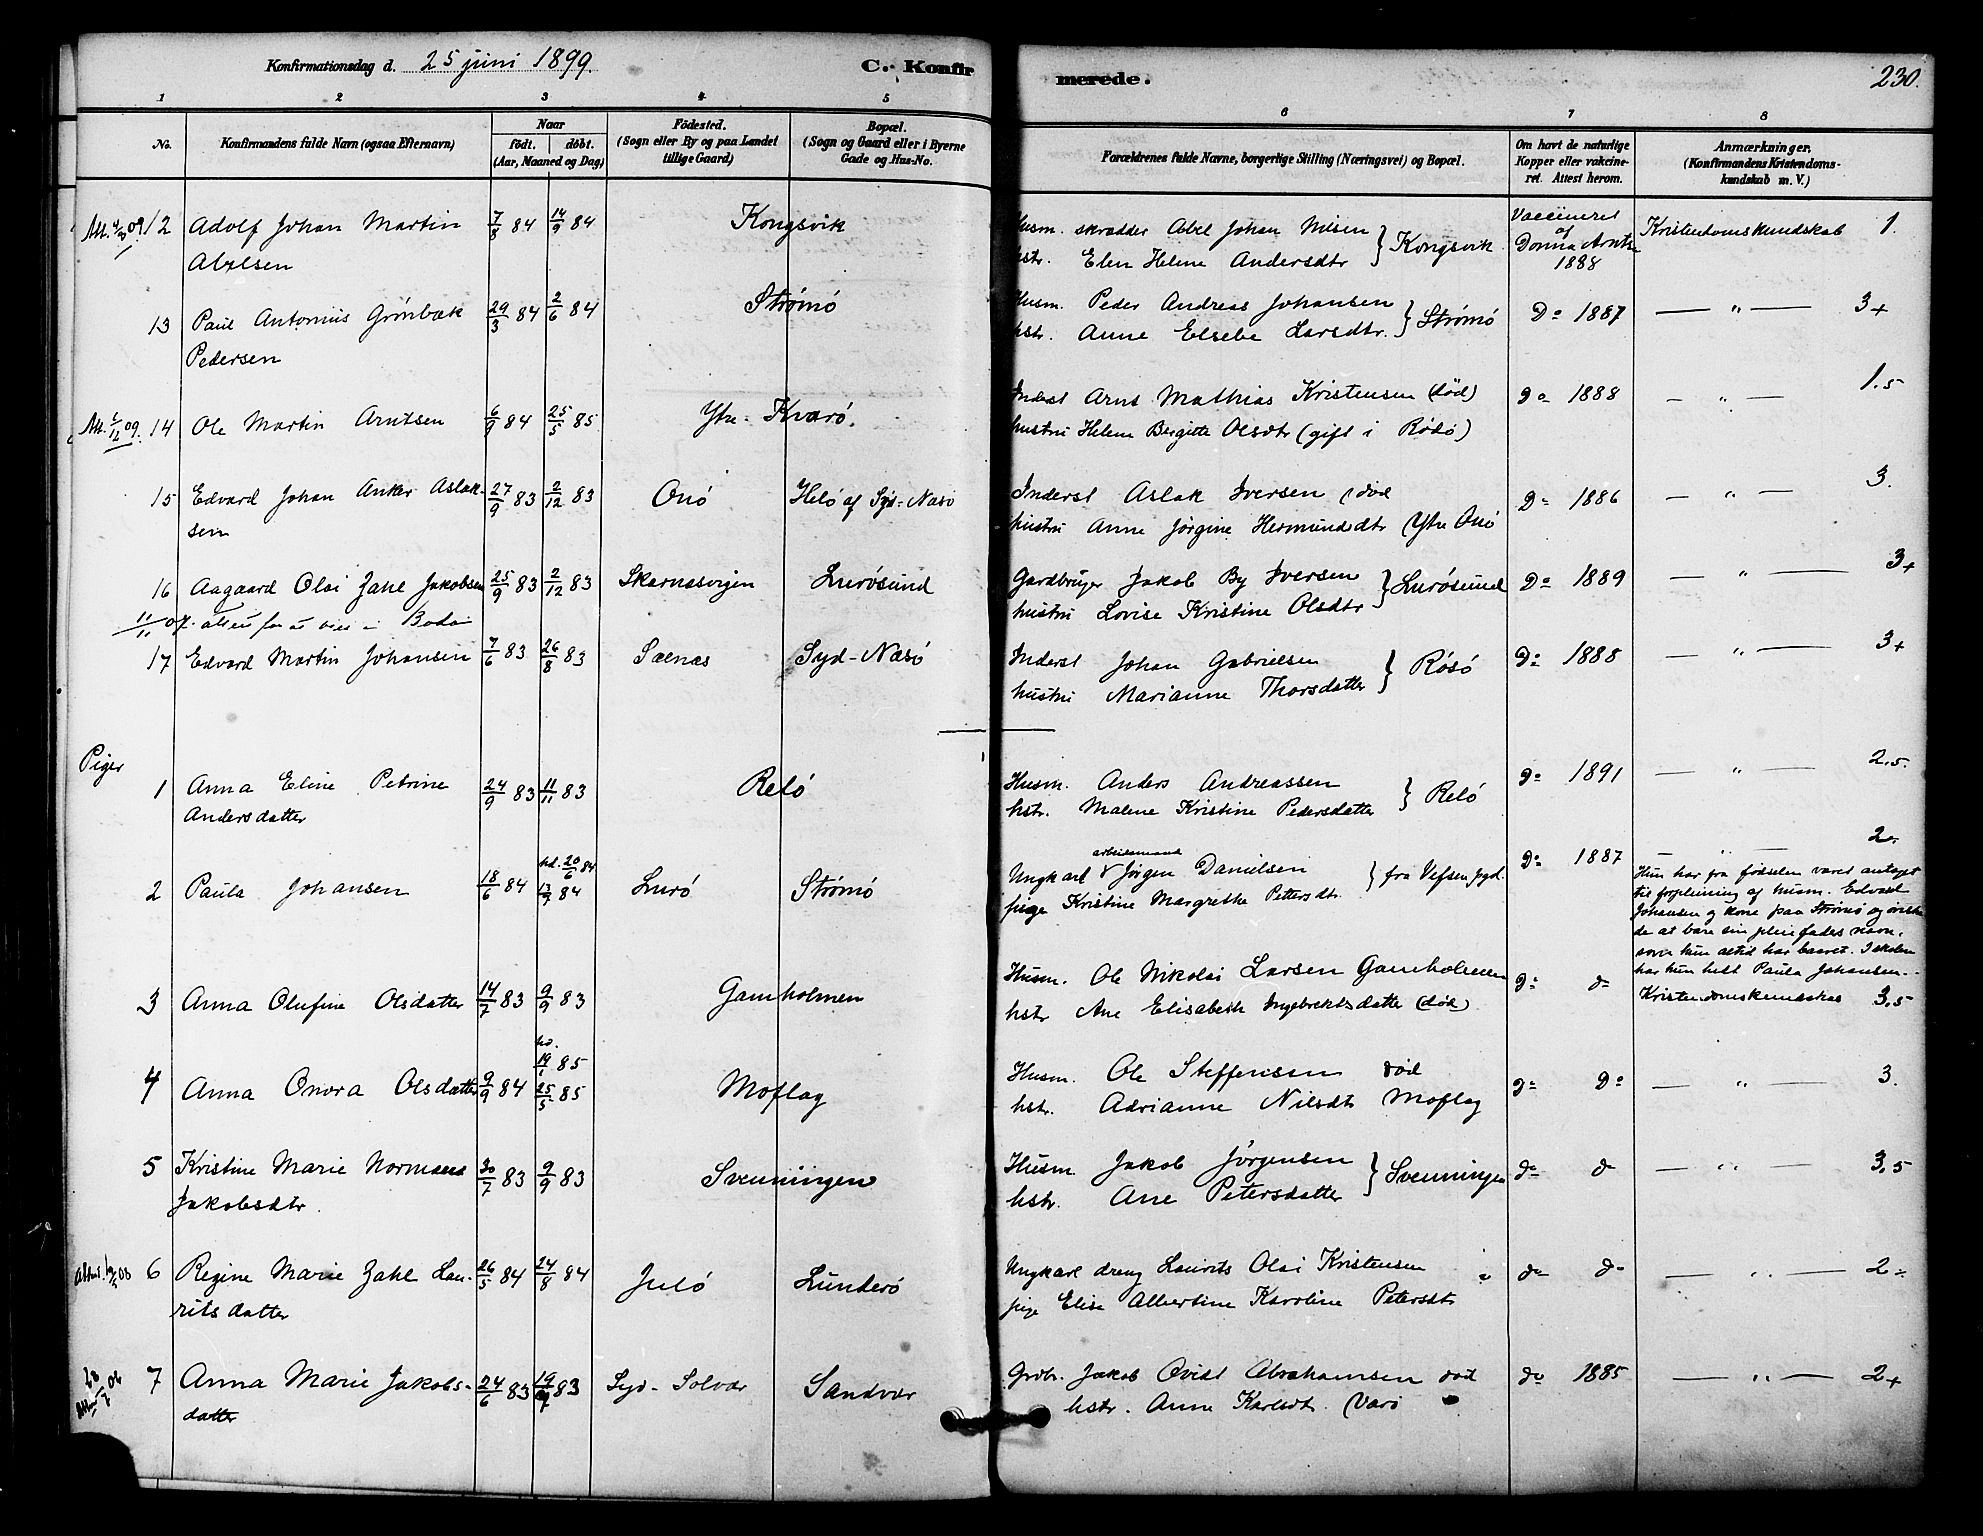 Konfirmationsdag d. 25 juni 1899. C. Konfirmerede. 230.
1 2 3 4 5 6 7 8
No. Konfirmandens fulde Navn (ogsaa Efternavn) Naar födt. döbt. (Aar, Maaned og Dag) Födested. (Sogn eller By og paa Landet tillige Gaard) Bopæl. (Sogn og Gaard eller i Byerne Gade og Hus-No. Forældrenes fulde Navne, borgerlige Stilling (Næringsvei) og Bopæl. Om havt de naturlige Kopper eller vakcineret. Attest herom. Anmærkninger, (Konfirmandens Kristendomskundskab m. V.)
12 Adolf Johan Martin 7/8 84 14/9 84 Kongsvik Husm. skrædder Abel Johan Nilsen } Kongsvik Vaccineret af Kristendomskundskab 1.
Abelsen hstr. Elen Helene Andersdtr 1888
13 Paul Antonius Grönbæk 29/3 84 2/6 84 Strömö Husm. Peder Andreas Johansen } Strömö Do 1887 — " — 3+
Pedersen hstr. Anne Elsebe Larsdtr.
14 Ole Martin Arntsen 6/9 84 25/5 85 Ytr. Kvarö. Inderst Arnt Mathias Kristensen (död) do 1888 — " — 1.5
hustru Helene Bergitte Olsdtr (gift i Rödö)
15 Edvard Johan Anker Aslak- 27/9 83 2/12 83 Onö Helö af Syd-Næsö Inderst Aslak Iversen (död Do 1886 — " — 3.
sen hustru Anne Jörgine Hermundsdtr (Ytre Onö
16 Aagaard Olai Zahl Jakobsen 25/9 83 2/12 83 Skarnæsvigen Lurösund Gardbruger Jakob By Iversen } Lurösund Do 1889 — " — 3+
11/11 07. attest for Bodö hustru Lovise Kristine Olsdtr
17 Edvard Martin Johansen 7/6 83 26/8 83 Sælnæs Syd-Næsö Inderst Johan Gabrielsen } Rösö Do 1888 — " — 3+
hustru Marianne Thorsdatter
Piger
1 Anna Eline Petrine 24/9 83 11/11 83 Relö Husm. Anders Andreassen } Relö Do 1891 — " — 2.5.
Andersdatter hstr. Malene Kristine Pedersdatter
2 Paula Johansen 18/6 84 hd. 20/6 84 13/7 84 Lurö Strömö Ungkarl arbeidsmand Jörgen Danielsen } fra Vefsen pgd. Do 1887 — " — 2.
pige Kristine Margrethe Pettersdtr.
Hun har fra födselen været antaget
til forpleining af husm. Edvard
Johansen og kone paa Strömö og önske
de at bære sin pleiefaders navn,
som hun altid har baaret. I skolen
har hun hedt Paula Johansen.
3 Anna Olufine Olsdatter 14/7 83 9/9 83 Gamholmen Husm. Ole Nikolai Larsen Gamholmen do d Kristendomskundskab 3.5
hstr Ane Elisabeth Ingebrektsdatter (död)
4 Anna Onora Olsdatter 9/9 84 hd. 19/1 85 25/5 85 Moflag Husm. Ole Steffensen död do Do — " — 3.
hstr. Adrianne Nilsdtr Moflag
5 Kristine Marie Normans 30/7 83 9/9 83 Svenningen Husm Jakob Jörgensen } Svenningen do d — " — 3.5
Jakobsdtr. hstr. Ane Petersdatter
6 Regine Marie Zahl Lau- 26/5 84 24/8 84 Julö Lunderö Ungkarl dreng Laurits Olai Kristensen do d — " — 2÷
ritsdatter pige Elise Albertine Karoline Petersdtr
7 Anna Marie Jakobs- 24/6 83 19/7 83 Syd-Solvær Sandvær Grdbr. Jakob Qvidt Abrahamsen död do 1885 — " — 2+
datter hstr. Anne Karlsdtr. (Varö